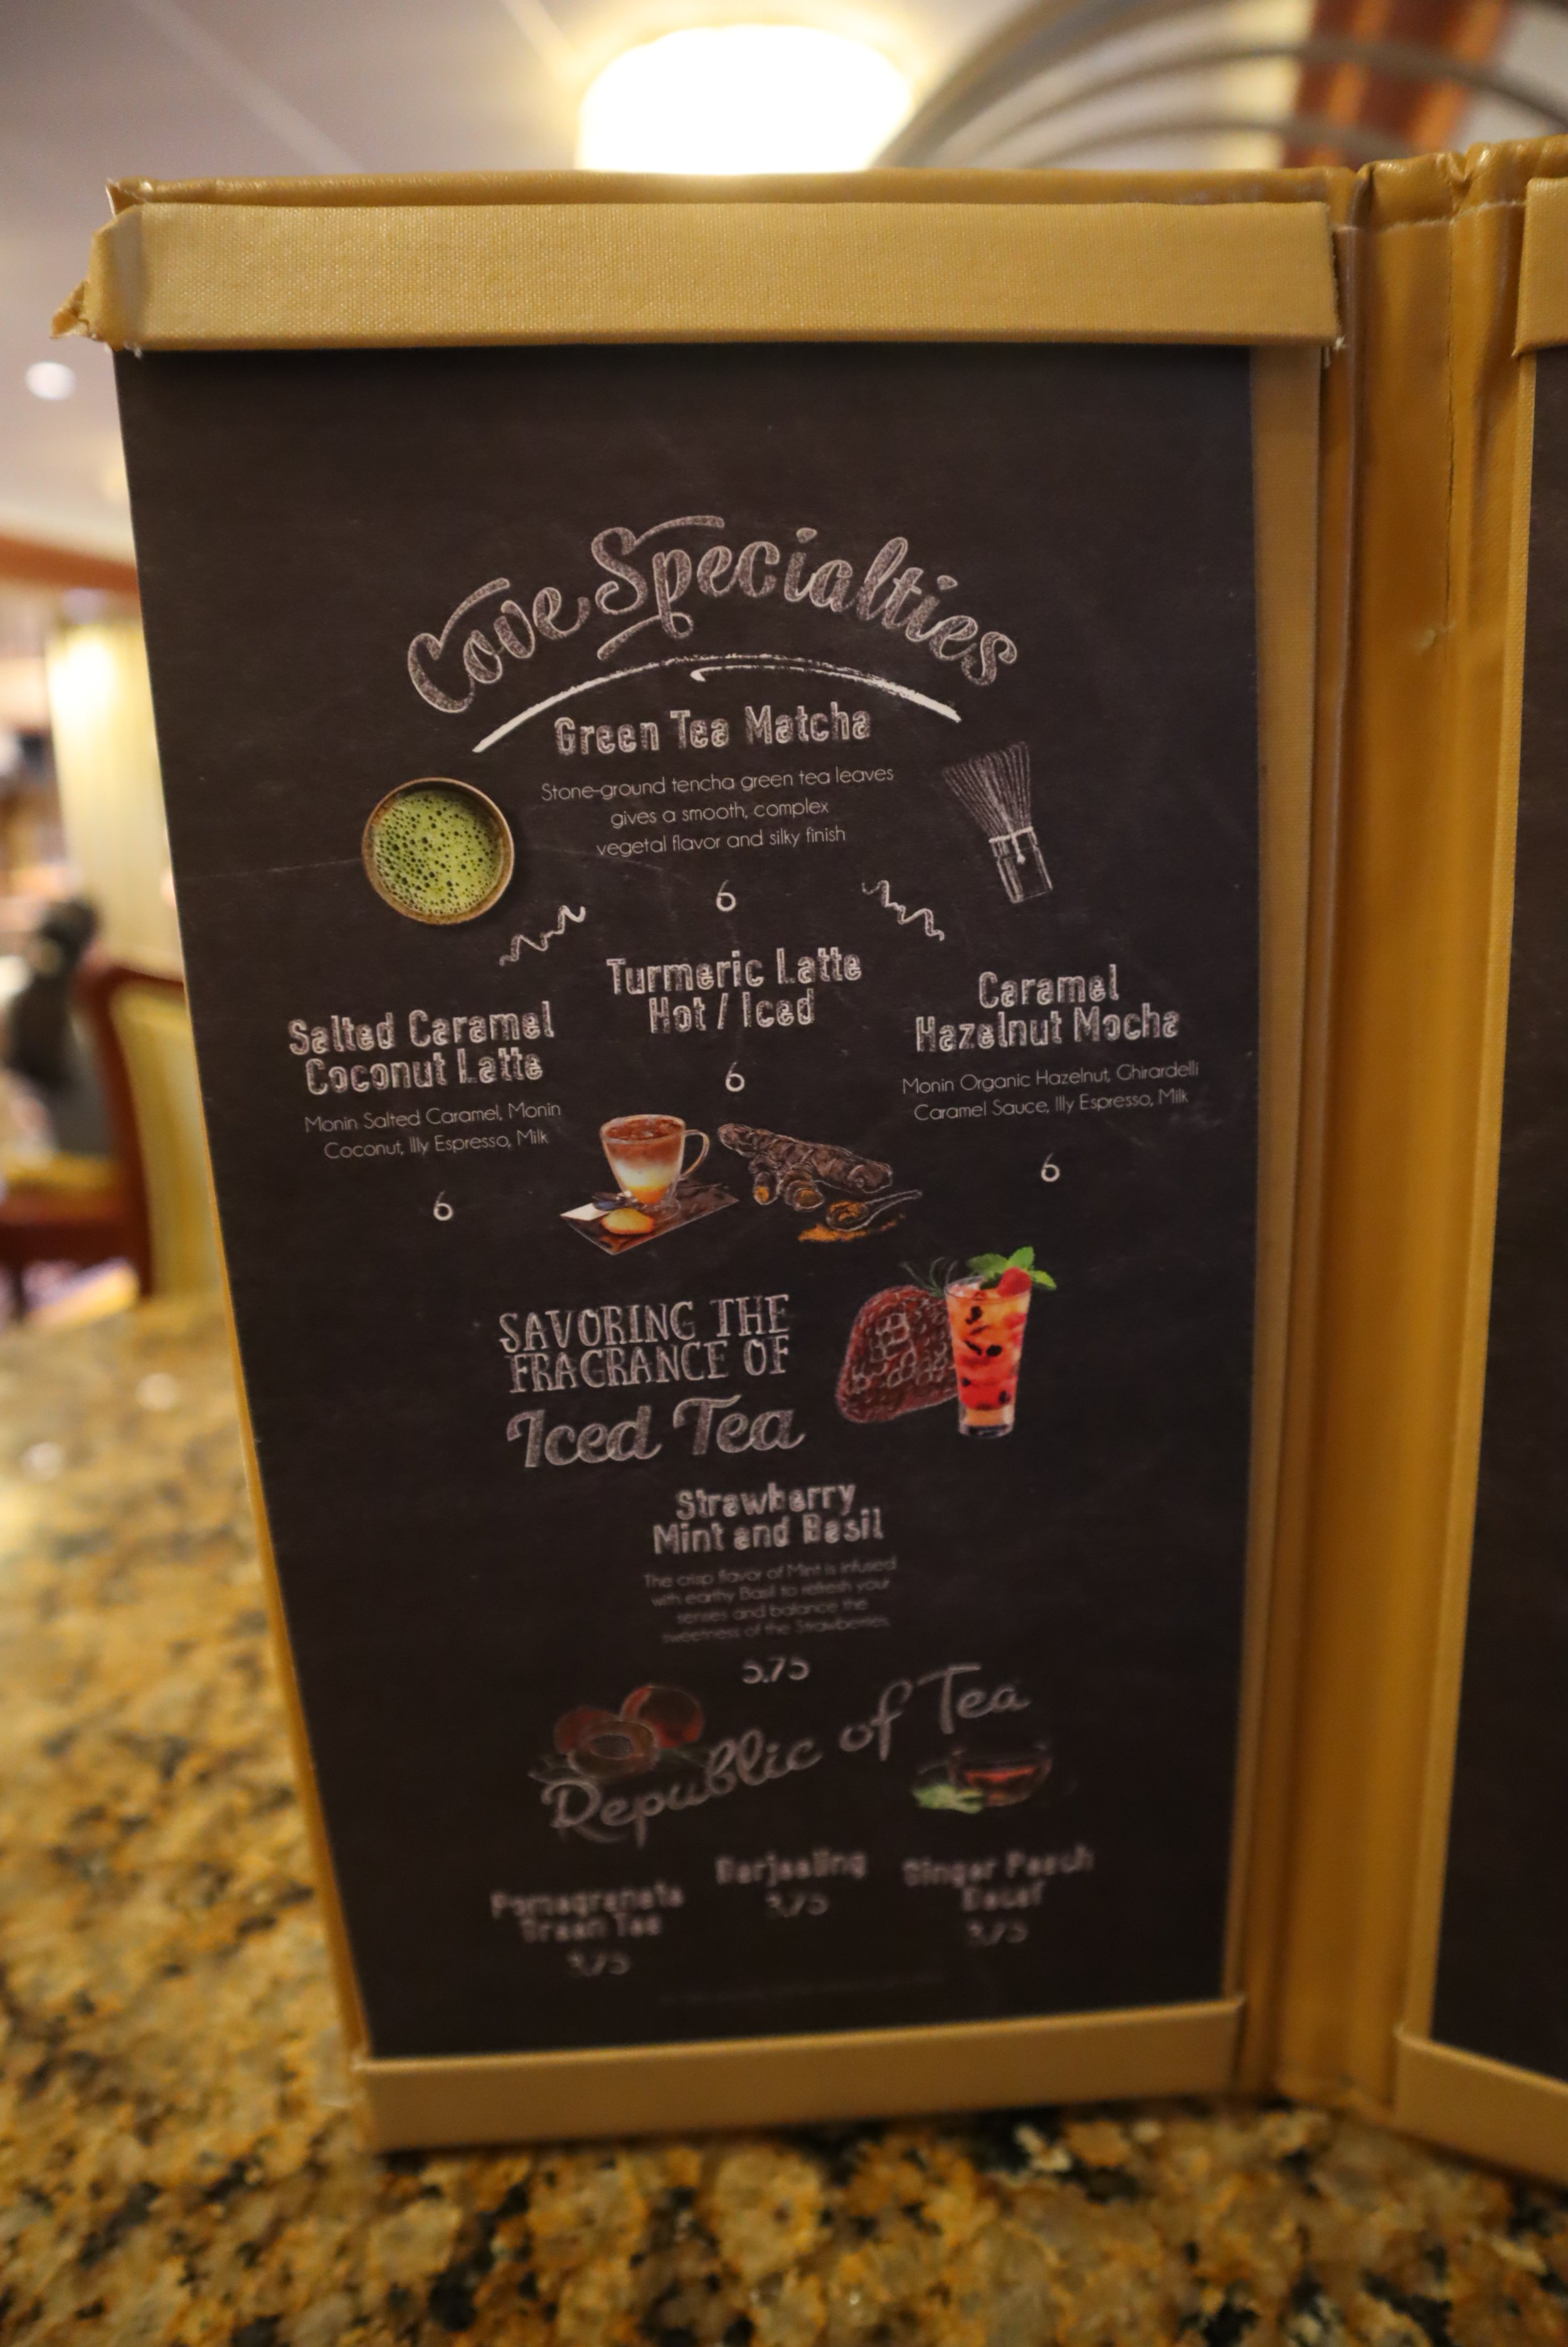 Cove Specialties
Green Tea Matcha
Stone-ground tencha green tea leaves
gives a smooth, complex
vegetal flavor and silky finish
6
Salted Caramel
Coconut Latte
Monin Salted Caramel, Monin
Coconut, Illy Espresso, Milk
6
Turmeric Latte
Hot / Iced
6
Caramel
Hazelnut Mocha
Monin Organic Hazelnut, Ghirardelli
Caramel Sauce, Illy Espresso, Milk
6
SAVORING THE
FRAGRANCE OF
Iced Tea
Strawberry
Mint and Basil
The crisp flavor of Mint is infused
with earthy Basil to refresh your
senses and balance the
sweetness of the Strawberries.
5.75
Republic of Tea
Pomegranate
Green Tea
3.75
Darjeeling
3.75
Ginger Peach
Decaf
3.75